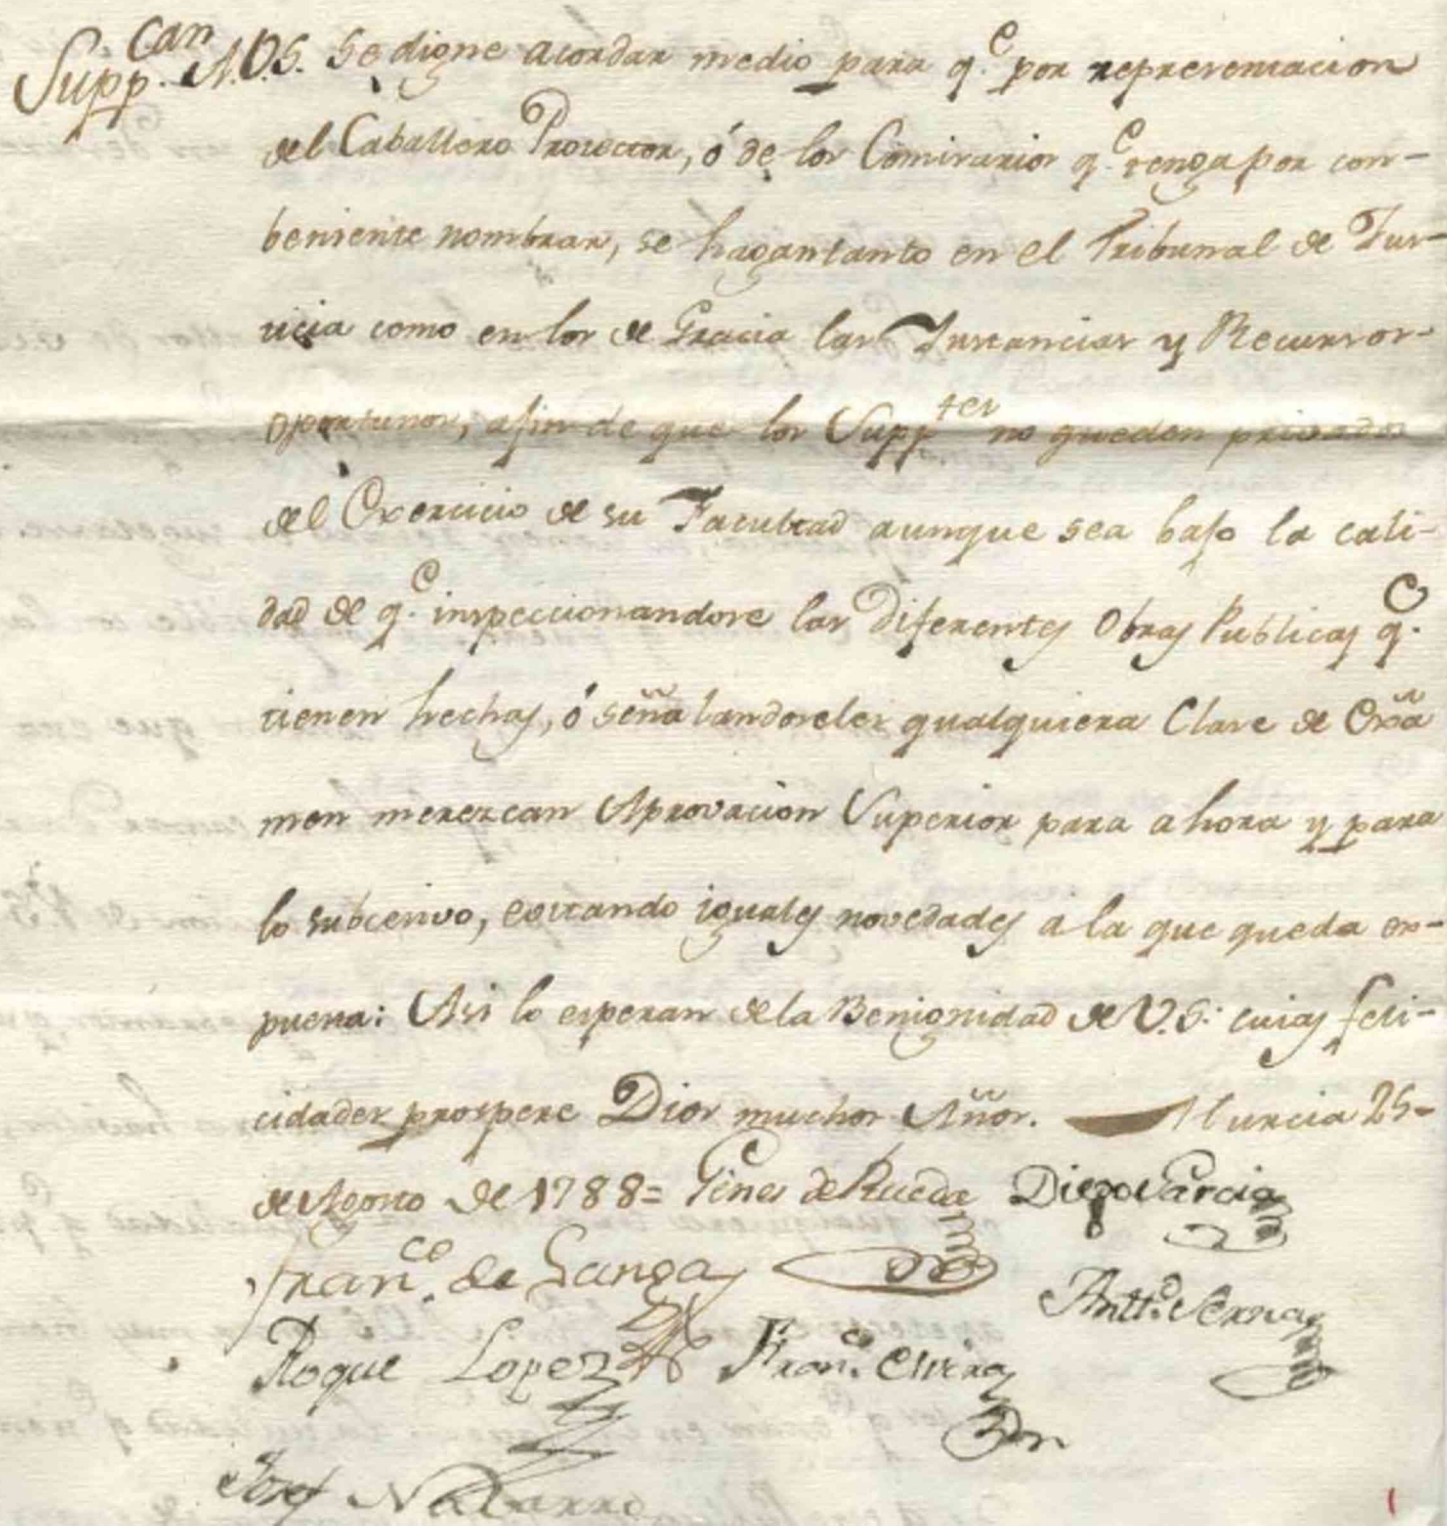 Supp.can A.V.S. se digne acordar medio para q.e por representacion
del Caballero Protector, ó de los Comisarios q.e tenga por con-
beniente nombrar, se hagan tanto en el Tribunal de Jus-
ticia como en los de Gracia las Instancias y Recursos
oportunos, afin de que los Supp.tes no queden privados
del Exercicio de su Facultad aunque sea bajo la cali-
dad de q.e inspeccionandose las Diferentes Obras Publicas q.e
tienen hechas, ó señalandoseles qualquiera Clase de Exã
men merezcan Aprovacion Superior para ahora y para
lo subcesivo, evitando iguales novedades a la que queda ex-
puesta: Asi lo esperan de la Benignidad de V.S. cuias feli-
cidades prospere Dios muchos Años. Murcia 25-
de Agosto de 1788= Gines de Rueda Diego Garcia
Fran.co de Ganga Antt.o Serna
Roque Lopez Fran.co Elvira
Josef Navarro